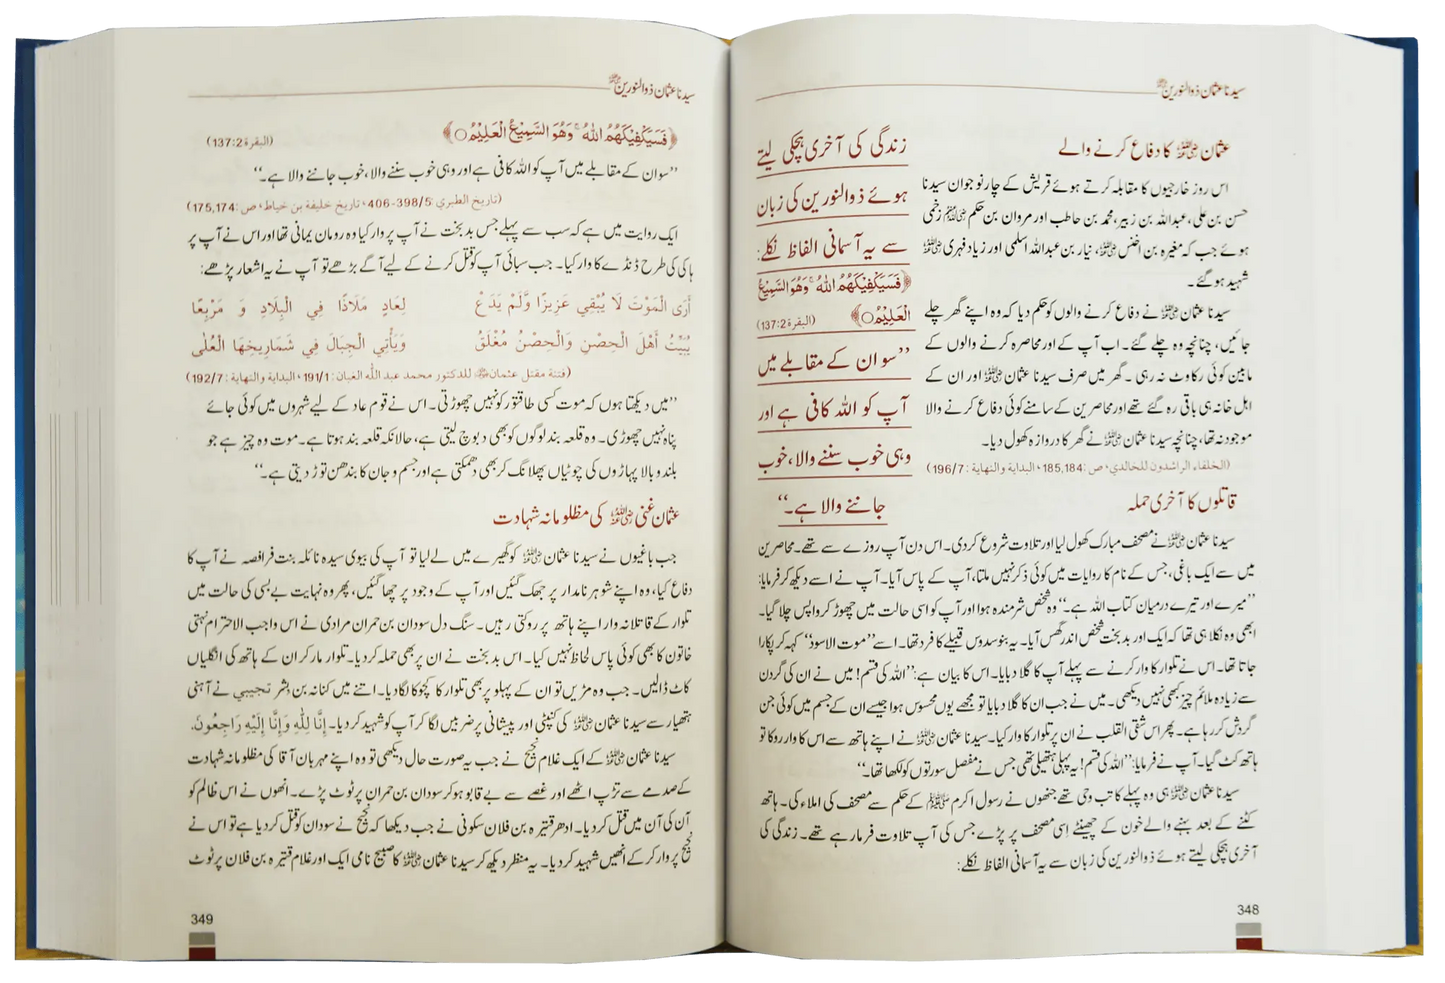 سیدنا عثمان ذوالنورین رضی اللہ عنہ
عثمان رضی اللہ عنہ کا دفاع کرنے والے
اس روز خارجیوں کا مقابلہ کرتے ہوئے قریش کے چار نوجوان سیدنا
حسن بن علی، عبداللہ بن زبیر، محمد بن حاطب اور مروان بن حکم رضی اللہ عنہم زخمی
ہوئے جب کہ مغیرہ بن اخنس رضی اللہ عنہ، نیار بن عبداللہ اسلمی اور زیاد فہری رضی اللہ عنہ
شہید ہو گئے۔
سیدنا عثمان رضی اللہ عنہ نے دفاع کرنے والوں کو حکم دیا کہ وہ اپنے گھر چلے
جائیں، چنانچہ وہ چلے گئے۔ اب آپ کے اور محاصرہ کرنے والوں کے
مابین کوئی رکاوٹ نہ رہی۔ گھر میں صرف سیدنا عثمان رضی اللہ عنہ اور ان کے
اہل خانہ ہی باقی رہ گئے تھے اور محاصرین کے سامنے کوئی دفاع کرنے والا
موجود نہ تھا، چنانچہ سیدنا عثمان رضی اللہ عنہ نے گھر کا دروازہ کھول دیا۔
(الخلفاء الراشدون للخالدي، ص: 185,184، البداية والنهاية: 196/7)
زندگی کی آخری ہچکی لیتے
ہوئے ذوالنورین کی زبان
سے یہ آسمانی الفاظ نکلے:
﴿فَسَيَكْفِيكَهُمُ اللَّهُ ۚ وَهُوَ السَّمِيعُ
الْعَلِيمُ○﴾ (البقرة 137:2)
’’سو ان کے مقابلے میں
آپ کو اللہ کافی ہے اور
وہی خوب سننے والا، خوب
جاننے والا ہے۔‘‘
قاتلوں کا آخری حملہ
سیدنا عثمان رضی اللہ عنہ نے مصحف مبارک کھول لیا اور تلاوت شروع کر دی۔ اس دن آپ روزے سے تھے۔ محاصرین
میں سے ایک باغی، جس کے نام کا روایات میں کوئی ذکر نہیں ملتا، آپ کے پاس آیا۔ آپ نے اسے دیکھ کر فرمایا:
’’میرے اور تیرے درمیان کتاب اللہ ہے۔‘‘ وہ شخص شرمندہ ہوا اور آپ کو اسی حالت میں چھوڑ کر واپس چلا گیا۔
ابھی وہ نکلا ہی تھا کہ ایک اور بدبخت شخص اندر گھس آیا۔ یہ بنو سدوس قبیلے کا فرد تھا۔ اسے ’’موت الاسود‘‘ کہہ کر پکارا
جاتا تھا۔ اس نے تلوار کا وار کرنے سے پہلے آپ کا گلا دبایا۔ اس کا بیان ہے: ’’اللہ کی قسم! میں نے ان کی گردن
سے زیادہ ملائم چیز کبھی نہیں دیکھی۔ میں نے جب ان کا گلا دبایا تو مجھے یوں محسوس ہوا جیسے ان کے جسم میں کوئی جن
گردش کر رہا ہے۔ پھر اس شقی القلب نے ان پر تلوار کا وار کیا۔ سیدنا عثمان رضی اللہ عنہ نے اپنے ہاتھ سے اس کا وار روکا تو
ہاتھ کٹ گیا۔ آپ نے فرمایا: ’’اللہ کی قسم! یہ پہلی ہتھیلی تھی جس نے مفصل سورتوں کو لکھا تھا۔‘‘
سیدنا عثمان رضی اللہ عنہ ہی وہ پہلے کاتب وحی تھے جنھوں نے رسول اکرم ﷺ کے حکم سے مصحف کی املاء کی۔ ہاتھ
کٹنے کے بعد بہنے والے خون کے چھینٹے اسی مصحف پر پڑے جس کی آپ تلاوت فرما رہے تھے۔ زندگی کی
آخری ہچکی لیتے ہوئے ذوالنورین کی زبان سے یہ آسمانی الفاظ نکلے:
348
سیدنا عثمان ذوالنورین رضی اللہ عنہ
﴿فَسَيَكْفِيكَهُمُ اللَّهُ ۚ وَهُوَ السَّمِيعُ الْعَلِيمُ○﴾ (البقرة 137:2)
’’سو ان کے مقابلے میں آپ کو اللہ کافی ہے اور وہی خوب سننے والا، خوب جاننے والا ہے۔‘‘
(تاريخ الطبري: 398/5-406، تاريخ خليفة بن خياط، ص: 175,174)
ایک روایت میں ہے کہ سب سے پہلے جس بدبخت نے آپ پر وار کیا وہ رومان یمانی تھا اور اس نے آپ پر
ہاکی کی طرح ڈنڈے کا وار کیا۔ جب سبائی آپ کو قتل کرنے کے لیے آگے بڑھے تو آپ نے یہ اشعار پڑھے:
أَرَى الْمَوْتَ لَا يُبْقِي عَزِيزًا وَّلَمْ يَدَعْ لِعَادٍ مَلَاذًا فِي الْبِلَادِ وَ مَرْبَعًا
يُبَيِّتُ أَهْلَ الْحِصْنِ وَالْحِصْنُ مُغْلَقٌ وَيَأْتِي الْجِبَالَ فِي شَمَارِيخِهَا الْعُلَى
(فتنة مقتل عثمان رضی اللہ عنہ للدكتور محمد عبد الله الغبان: 191/1، البداية والنهاية: 192/7)
’’میں دیکھتا ہوں کہ موت کسی طاقتور کو نہیں چھوڑتی۔ اس نے قوم عاد کے لیے شہروں میں کوئی جائے
پناہ نہیں چھوڑی۔ وہ قلعہ بند لوگوں کو بھی دبوچ لیتی ہے، حالانکہ قلعہ بند ہوتا ہے۔ موت وہ چیز ہے جو
بلند و بالا پہاڑوں کی چوٹیاں پھلانگ کر بھی دھمکتی ہے اور جسم و جان کا بندھن توڑ دیتی ہے۔‘‘
عثمان غنی رضی اللہ عنہ کی مظلومانہ شہادت
جب باغیوں نے سیدنا عثمان رضی اللہ عنہ کو گھیرے میں لے لیا تو آپ کی بیوی سیدہ نائلہ بنت فرافصہ نے آپ کا
دفاع کیا، وہ اپنے شوہر نامدار پر جھک گئیں اور آپ کے وجود پر چھا گئیں، پھر وہ نہایت بے بسی کی حالت میں
تلوار کے قاتلانہ وار اپنے ہاتھ پر روکتی رہیں۔ سنگ دل سودان بن حمران مرادی نے اس واجب الاحترام نہتی
خاتون کا بھی کوئی پاس لحاظ نہیں کیا۔ اس بدبخت نے ان پر بھی حملہ کر دیا۔ تلوار مار کر ان کے ہاتھ کی انگلیاں
کاٹ ڈالیں۔ جب وہ مڑیں تو ان کے پہلو پر بھی تلوار کا کچوکا لگا دیا۔ اتنے میں کنانہ بن بشر تجیبی نے آہنی
ہتھیار سے سیدنا عثمان رضی اللہ عنہ کی کنپٹی اور پیشانی پر ضربیں لگا کر آپ کو شہید کر دیا۔ إِنَّا لِلّٰهِ وَإِنَّا إِلَيْهِ رَاجِعُونَ.
سیدنا عثمان رضی اللہ عنہ کے ایک غلام نجیح نے جب یہ صورت حال دیکھی تو وہ اپنے مہربان آقا کی مظلومانہ شہادت
کے صدمے سے تڑپ اٹھے اور غصے سے بے قابو ہو کر سودان بن حمران پر ٹوٹ پڑے۔ انھوں نے اس ظالم کو
آن کی آن میں قتل کر دیا۔ ادھر قتیرہ بن فلان سکونی نے جب دیکھا کہ نجیح نے سودان کو قتل کر دیا ہے تو اس نے
نجیح پر وار کر کے انھیں شہید کر دیا۔ یہ منظر دیکھ کر سیدنا عثمان رضی اللہ عنہ کا صبیح نامی ایک اور غلام قتیرہ بن فلان پر ٹوٹ
349